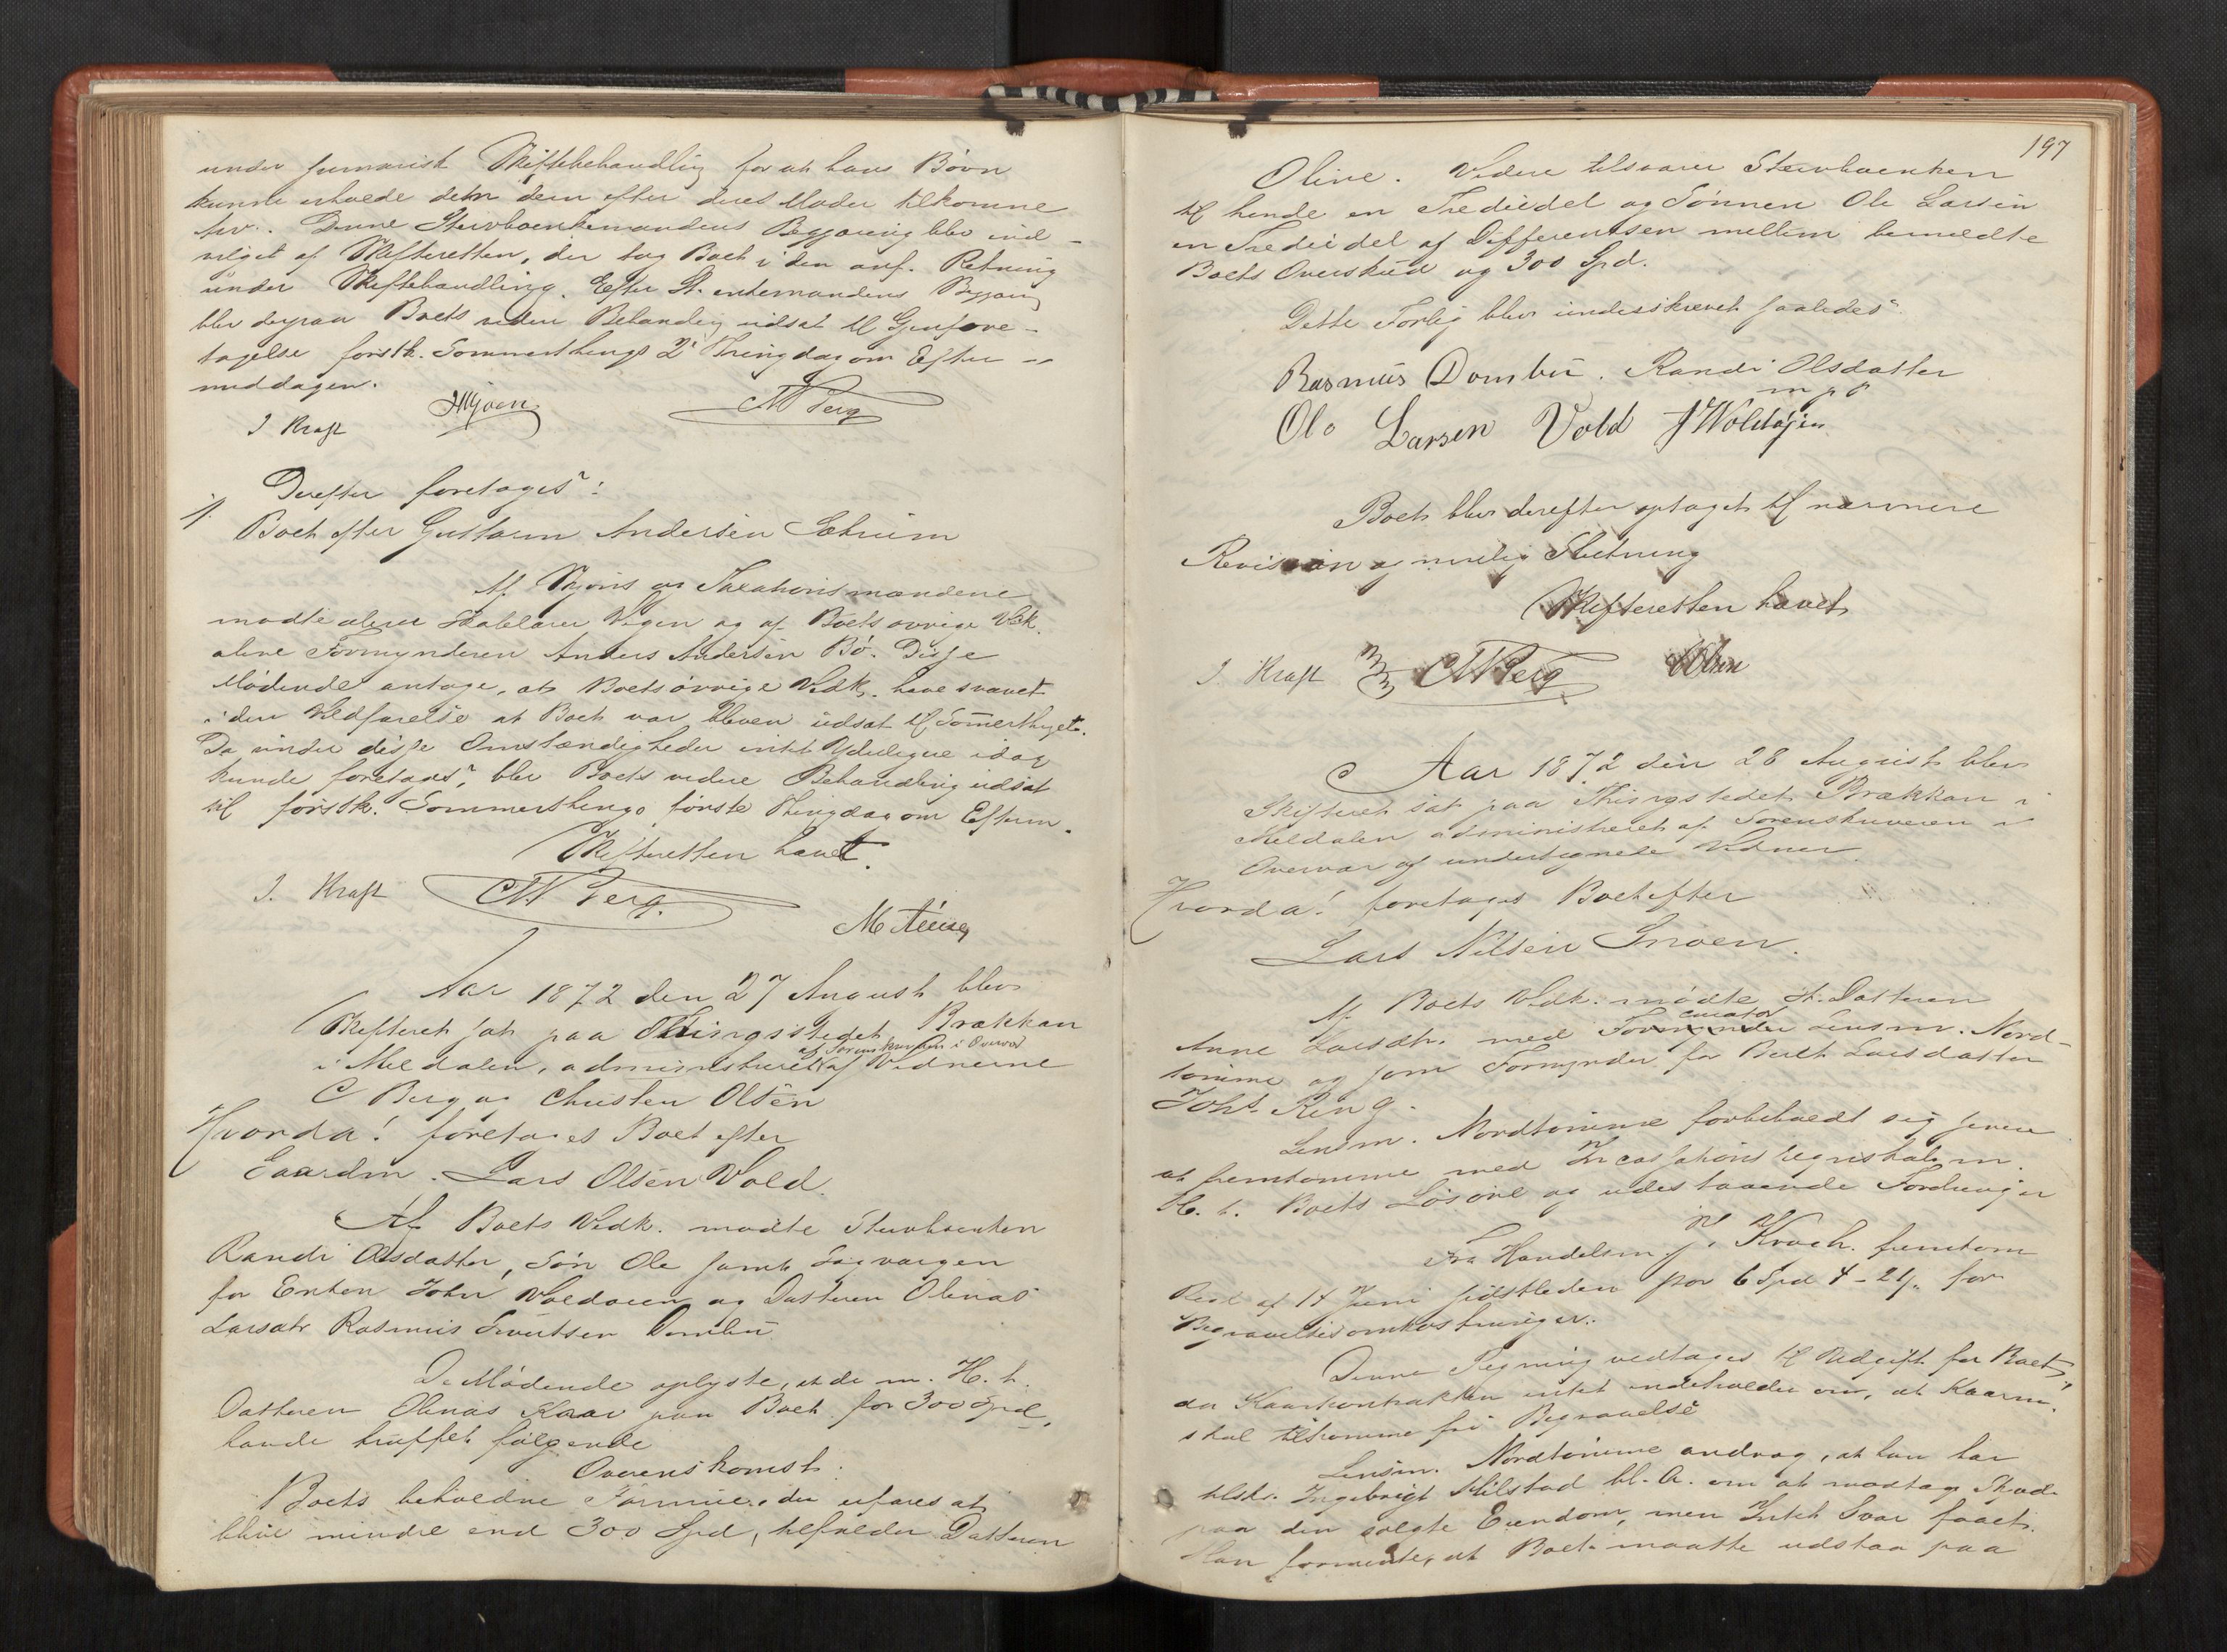 under summarisk Skiftebehandling for at hans Børn
kunde erholde den dem efter deres Moder tilkomne
Arv. Denne Stervboenkemandens Begjæring blev ind-
vilget af Skifteretten, der tog Boet i den anf. Retning
under Skiftebehandling. Efter St. enkemandens Begjæring
blev derpaa Boets videre Behandling udsat til Gjenfore-
tagelse førstk. Sommerthings 2den Thingdag om Efter-
middagen.
J Kraft CN Berg
Derefter foretoges:
Boet efter Gustavn Andersen Sætrum
Af Skjøns og Taxationsmændene
mødte alene og af Boets øvrige Vedk.
alene Formynderen Anders Andersen Bø. Disse
Mødende antage, at Boets øvrige Vedk. have svævet
i den Vildfarelse at Boet var bleven udsat til Sommerthinget.
Da under disse Omstændigheder intet Yderligere idag
kunde foretages, blev Boets videre Behandling udsat
til førstk. Sommerthings første Thingdag om Efterm.
Skifteretten hævet.
J. Kraft CN Berg.
Aar 1872 den 27 August blev
Skifteret sat paa Thingstedet Brækkan
i Meldalen, administreret af Sorenskriveren i Overvær af Vidnerne
C Berg og Christen Olsen
Hvorda! foretoges Boet efter
Gaardm. Lars Olsen Vold.
Af Boets Vedk. mødte Stervboenken
Randi Olsdatter, Søn Ole samt Lagværgen
for Enken John Woldøien og Datteren Olinas
Larsdtr Rasmus Dombu
De Mødende oplyste, at de m. H. t.
Datteren Olinas Krav paa Boet for 300 Spd,
havde truffet følgende
Overenskomst:
Boets beholdne Formue, der erfares at
blive mindre end 300 Spd, tilfalder Datteren
197
Oline. Videre tilsvarer Stervboenken
til hende en Trediedel og Sønnen Ole Larsen
en Trediedel af Differentsen mellem bemeldte
Boets Overskud og 300 Spd.
Dette Forlig blev underskrevet saaledes:
Rasmus Dombu. Randi Olsdatter
m p P
Ole Larsen Vold J Woldøjen
Boet blev derefter optaget til nærmere
Revision og mulig Slutning
Skifteretten hævet
J Kraft CN Berg COlsen
Aar 1872 den 28 August blev
Skifteret sat paa Thingstedet Brækkan i
Meldalen administreret af Sorenskriveren i
Overvær af undertegnede Vidner.
Hvorda! foretoges Boet efter
Lars Nilsen Snoen.
Af Boets Vedk. mødte St. Datteren
Anne Larsdtr. med curator Lensm. Nord-
tømme og som Formynder for Berit Larsdatter
Johs Ring.
Lensm. Nordtømme forbeholdt sig senere
at fremkomme med Incassationsregnskab m.
H. t. Boets Løsøre og udestaaende Fordringer
Fra Handelsm J. N. Kroch. fremkom
Regn af 14 Juni sidstleden stor 6 Spd 4 - 21 s. for
Begravelsesomkostninger.
Denne Regning vedtoges til Udgift for Boet,
da Kaarkontrakten intet indeholder om, at Kaarm.
skal tilkomme fri Begravelse
Lensm. Nordtømme androg, at han har
tilskr. Ingebrigt Kilstad bl. A. om at modtage Skjøde
paa den solgte Eiendom, men Intet Svar faaet.
Han formente, at Boet maatte udstaa paa